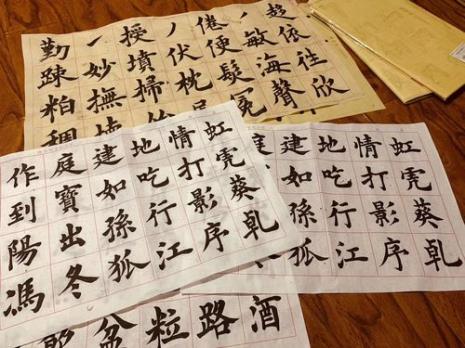 依往欣
敏海聲
倦便髮
伏枕
授墳掃
妙撫
勤踈粕稠
虹霓葵乹
情打影序
地吃行江
建如孫狐
虹霓葵乹
情打影序
地吃行江
建如孫狐
庭寶出冬
作到陽馮
酒
路
粒
盆